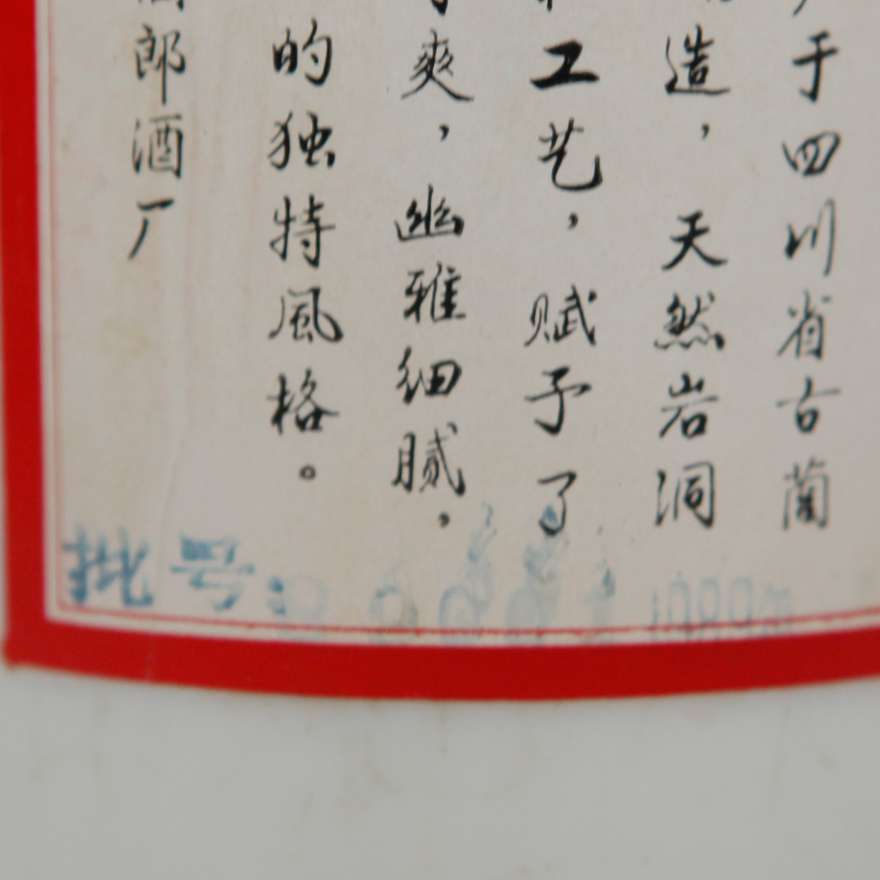 于四川省古蔺
造，天然岩洞
工艺，赋予了
爽，幽雅细腻，
的独特風格。
郎酒厂
批号：